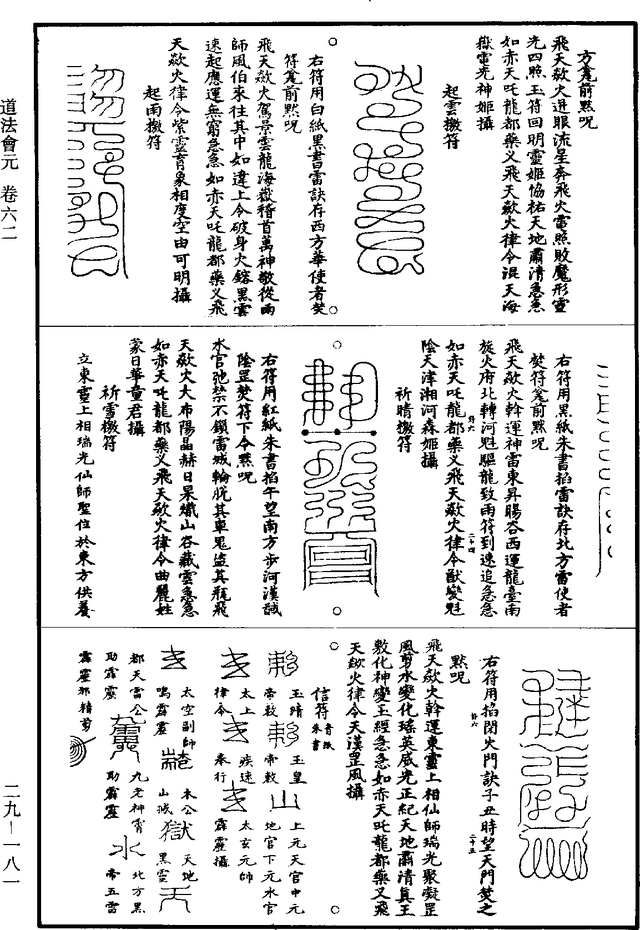 道法會元　卷六二
方竈前默呪
飛天歘火迸眼流星奔飛火電照敗魔形靈
光四照玉符回明靈姬協祐天地肅清急急
如赤天吒龍都藥义飛天歘火律令混天海
嶽電光神姬攝
起雲檄符
右符用白紙黑書雷訣存西方華使者焚
符竈前默呪
飛天歘火駕景雲龍海嶽稽首萬神敬從雨
師風伯來往其中如違上令破身火鎔黑雲
速起應運無窮急急如赤天吒龍都藥义飛
天歘火律令紫靈育象相度空由可明攝
起雨檄符
右符用黑紙朱書掐雷訣存北方雷使者
焚符竈前默呪
飛天歘火斡運神雷東昇暘谷西運龍臺南
旋火府北轉河魁驅龍致雨符到速追急急
如赤天吒龍都藥义飛天歘火律令猷變魁
陰天津湘河森姬攝
祈晴檄符
右符用紅紙朱書掐午望南方步河漢馘
陰罡焚符下令默呪
水官弛禁不鎖雷城輪脫其車鬼盜其瓶飛
天歘火大布陽晶赫日杲熾山谷藏雲急急
如赤天吒龍都藥义飛天歘火律令曲麗姓
蒙日華童君攝
祈雪檄符
立東靈上相瑞光仙師聖位於東方供養
右符用掐閉火門訣子丑時望天門焚之
默呪
飛天歘火斡運東靈上相仙師瑞光聚凝罡
風剪水變化瑤英威光正紀天地肅清真王
敷化神變玉經急急如赤天吒龍都藥义飛
天歘火律令天漢罡風攝
信符 青紙朱書
玉晴帝敕　玉皇帝敕　上元天官中元地官下元水官
太上律令　疾速奉行　太玄元師霹靂攝
太空副師鳴霹靂　木公山堿　天地黑靈
都天雷公助霹靂　九老神霄助霹靂　北方黑帝五雷
霹靂邪精剪
二九—一八一